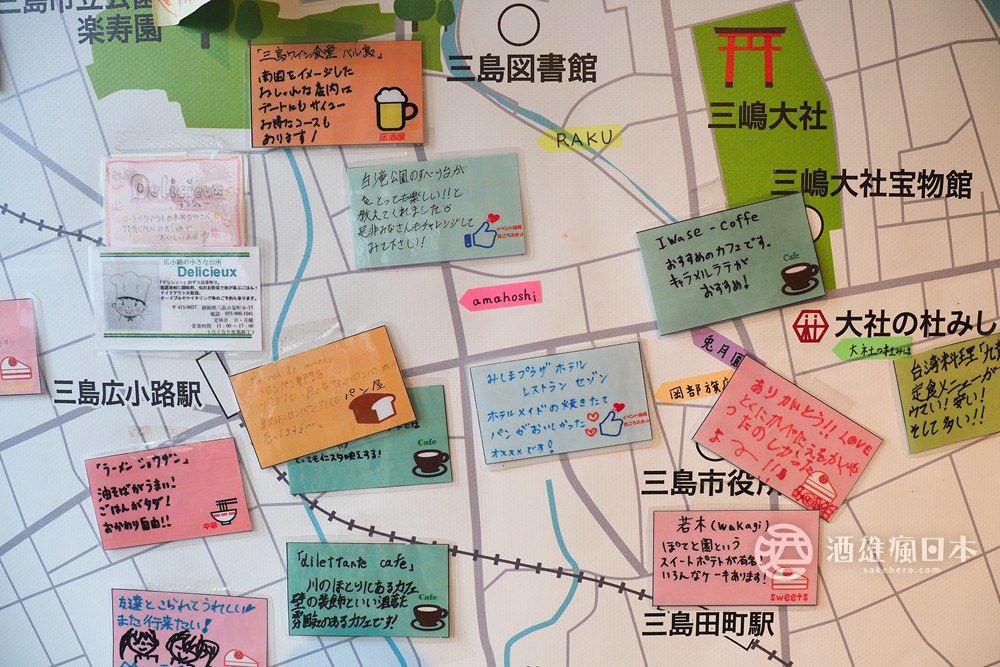 三島市立公園
楽寿園
三島図書館
三嶋大社
三嶋大社宝物館
「三島ワイン食堂 バル島」
南国をイメージした
おしゃれな店内は
デートにもサイコー
お得なコースも
あります!
居酒屋
RAKU
Delicieux
デリシュー
テイクアウトのお弁当やさん
広小路の小さな台所
Delicieux
〒411-0037
電話 055-900-1041
定休日 日・月曜
営業時間 11:00～17:00
(なくなり次第終了)
台湾公園のすべり台が
とっても楽しい!!と
教えてくれました
是非みなさんもチャレンジして
みて下さい!
イベント情報
見どころスポット
Iwase-Coffe
おすすめのカフェです。
キャラメルラテが
おすすめ!
Cafe
amahoshi
大社の杜みし
大社の杜みしま
兎月園
三島広小路駅
メロンパン専門店
パン屋
とってもインスタ映えする!
Cafe
みしまプラザホテル
レストラン セゾン
ホテルメイドの焼きたて
パンがおいしかった
オススメです!
イベント情報
見どころスポット
ありがとう!! LOVE
台湾料理「九
定食メニューが
ウマい!安い!
そして多い!!
三島市役所
「ラーメン ジョウゲン」
油そばがうまい!
ごはんがタダ!
おかわり自由!!
中華
「dilettante cafe」
川のほとりにあるカフェ
壁の装飾といい洒落た
雰囲気のあるカフェです!
Cafe
若木(wakagi)
ぽてと園という
スイートポテトが有名!
いろんなケーキあります!
sweets
酒雄瘋日本
sakehero.com
三島田町駅
友達とこられてうれしい
また行来たい!